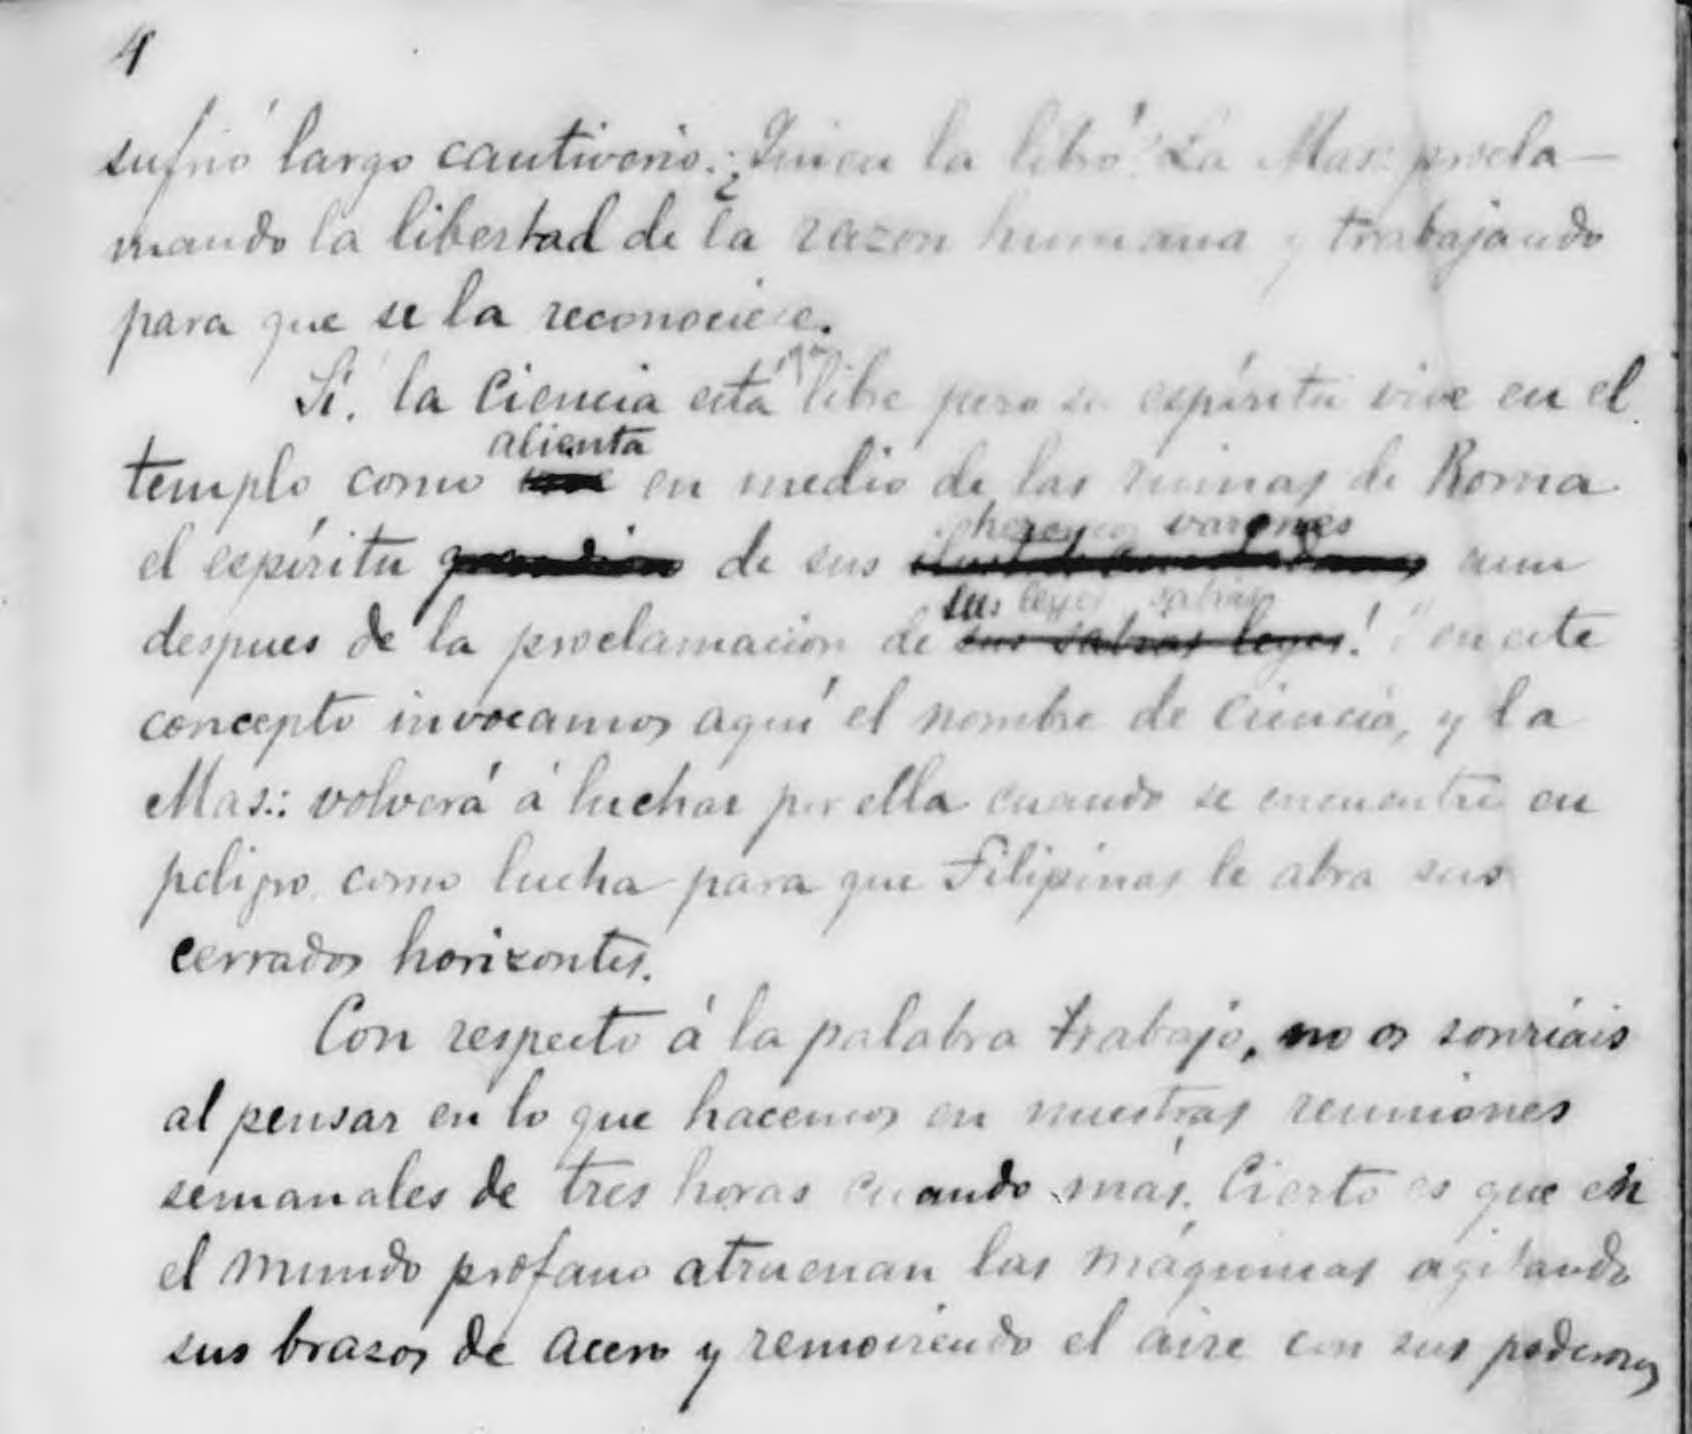 4
sufrió largo cautiverio. ¿Quien la libró? La Mas∴ procla-
mando la libertad de la razon humana y trabajando
para que se la reconociese.
Sí, la Ciencia está ya libre pero su espíritu vive en el
alienta
templo como en medio de las ruinas de Roma
heroycos varones
el espíritu grandioso de sus aun
sus leyes sabias
despues de la proclamacion de sus sabias leyes! en este
concepto invocamos aquí el nombre de Ciencia, y la
Mas∴ volverá á luchar por ella cuando se encuentre en
peligro como lucha para que Filipinas le abra sus
cerrados horizontes.
Con respecto á la palabra trabajo, no os sonriáis
al pensar en lo que hacemos en nuestras reuniones
semanales de tres horas cuando más. Cierto es que en
el mundo profano atruenan las máquinas agitando
sus brazos de acero y removiendo el aire con sus poderosos